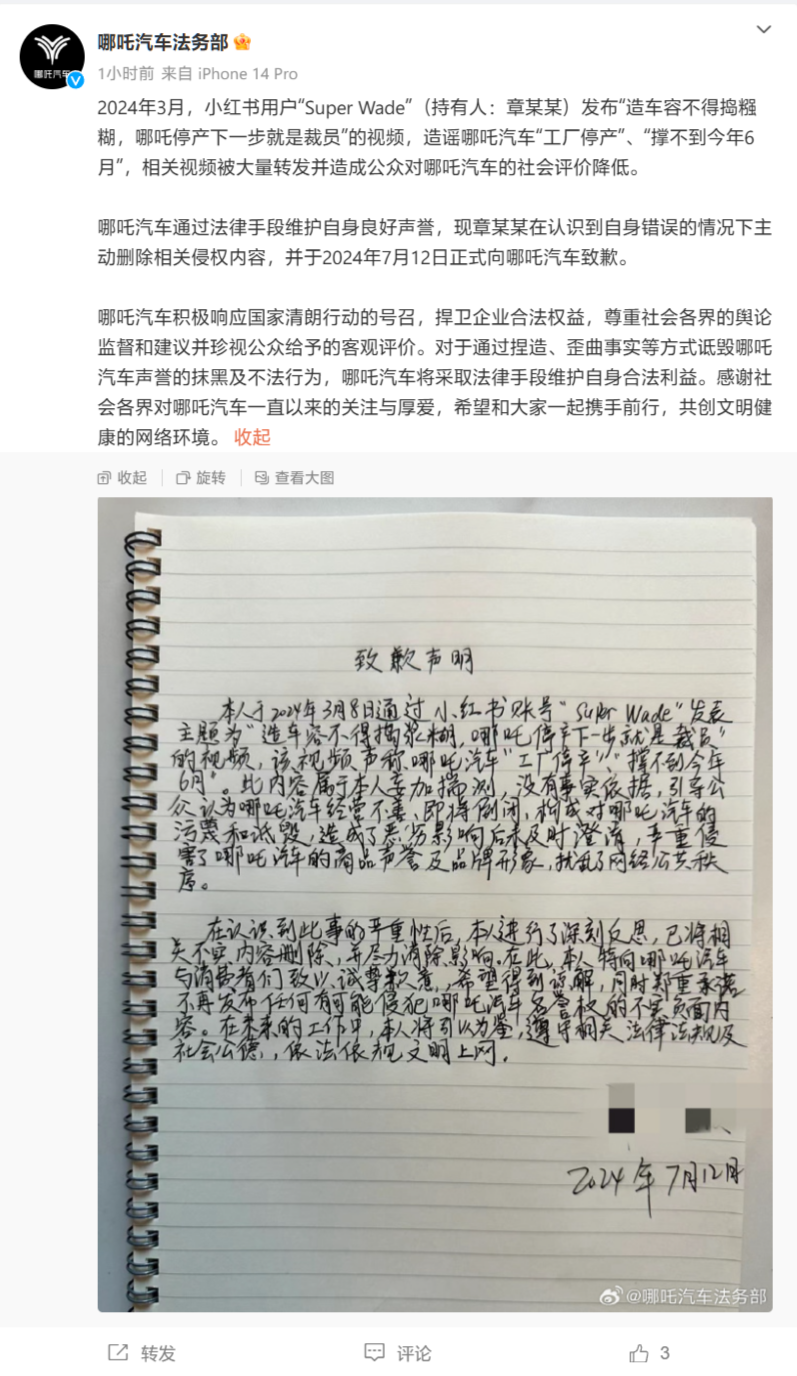 哪吒汽车法务部
1小时前 来自 iPhone 14 Pro
哪吒汽车
2024年3月，小红书用户“Super Wade”（持有人：章某某）发布“造车容不得捣糨
糊，哪吒停产下一步就是裁员”的视频，造谣哪吒汽车“工厂停产”、“撑不到今年6
月”，相关视频被大量转发并造成公众对哪吒汽车的社会评价降低。
哪吒汽车通过法律手段维护自身良好声誉，现章某某在认识到自身错误的情况下主
动删除相关侵权内容，并于2024年7月12日正式向哪吒汽车致歉。
哪吒汽车积极响应国家清朗行动的号召，捍卫企业合法权益，尊重社会各界的舆论
监督和建议并珍视公众给予的客观评价。对于通过捏造、歪曲事实等方式诋毁哪吒
汽车声誉的抹黑及不法行为，哪吒汽车将采取法律手段维护自身合法利益。感谢社
会各界对哪吒汽车一直以来的关注与厚爱，希望和大家一起携手前行，共创文明健
康的网络环境。 收起
收起 旋转 查看大图
致歉声明
本人于2024年3月8日通过小红书账号“Super Wade”发表
主题为“造车容不得捣浆糊，哪吒停产下一步就是裁员”
的视频，该视频声称哪吒汽车“工厂停产”、“撑不到今年
6月”。此内容属于本人妄加揣测，没有事实依据，引导公
众认为哪吒汽车经营不善、即将倒闭，构成对哪吒汽车的
污蔑和诋毁，造成了恶劣影响后未及时澄清，严重侵
害了哪吒汽车的商品声誉及品牌形象，扰乱了网络公共秩
序。
在认识到此事的严重性后，本人进行了深刻反思，已将相
关不实内容删除，并尽力消除影响。在此，本人特向哪吒汽车
与消费者们致以诚挚歉意，希望得到谅解，同时郑重承诺
不再发布任何有可能侵犯哪吒汽车名誉权的不实负面内
容。在未来的工作中，本人将引以为鉴，遵守相关法律法规及
社会公德，依法依规文明上网。
2024年7月12日
@哪吒汽车法务部
转发 评论 3